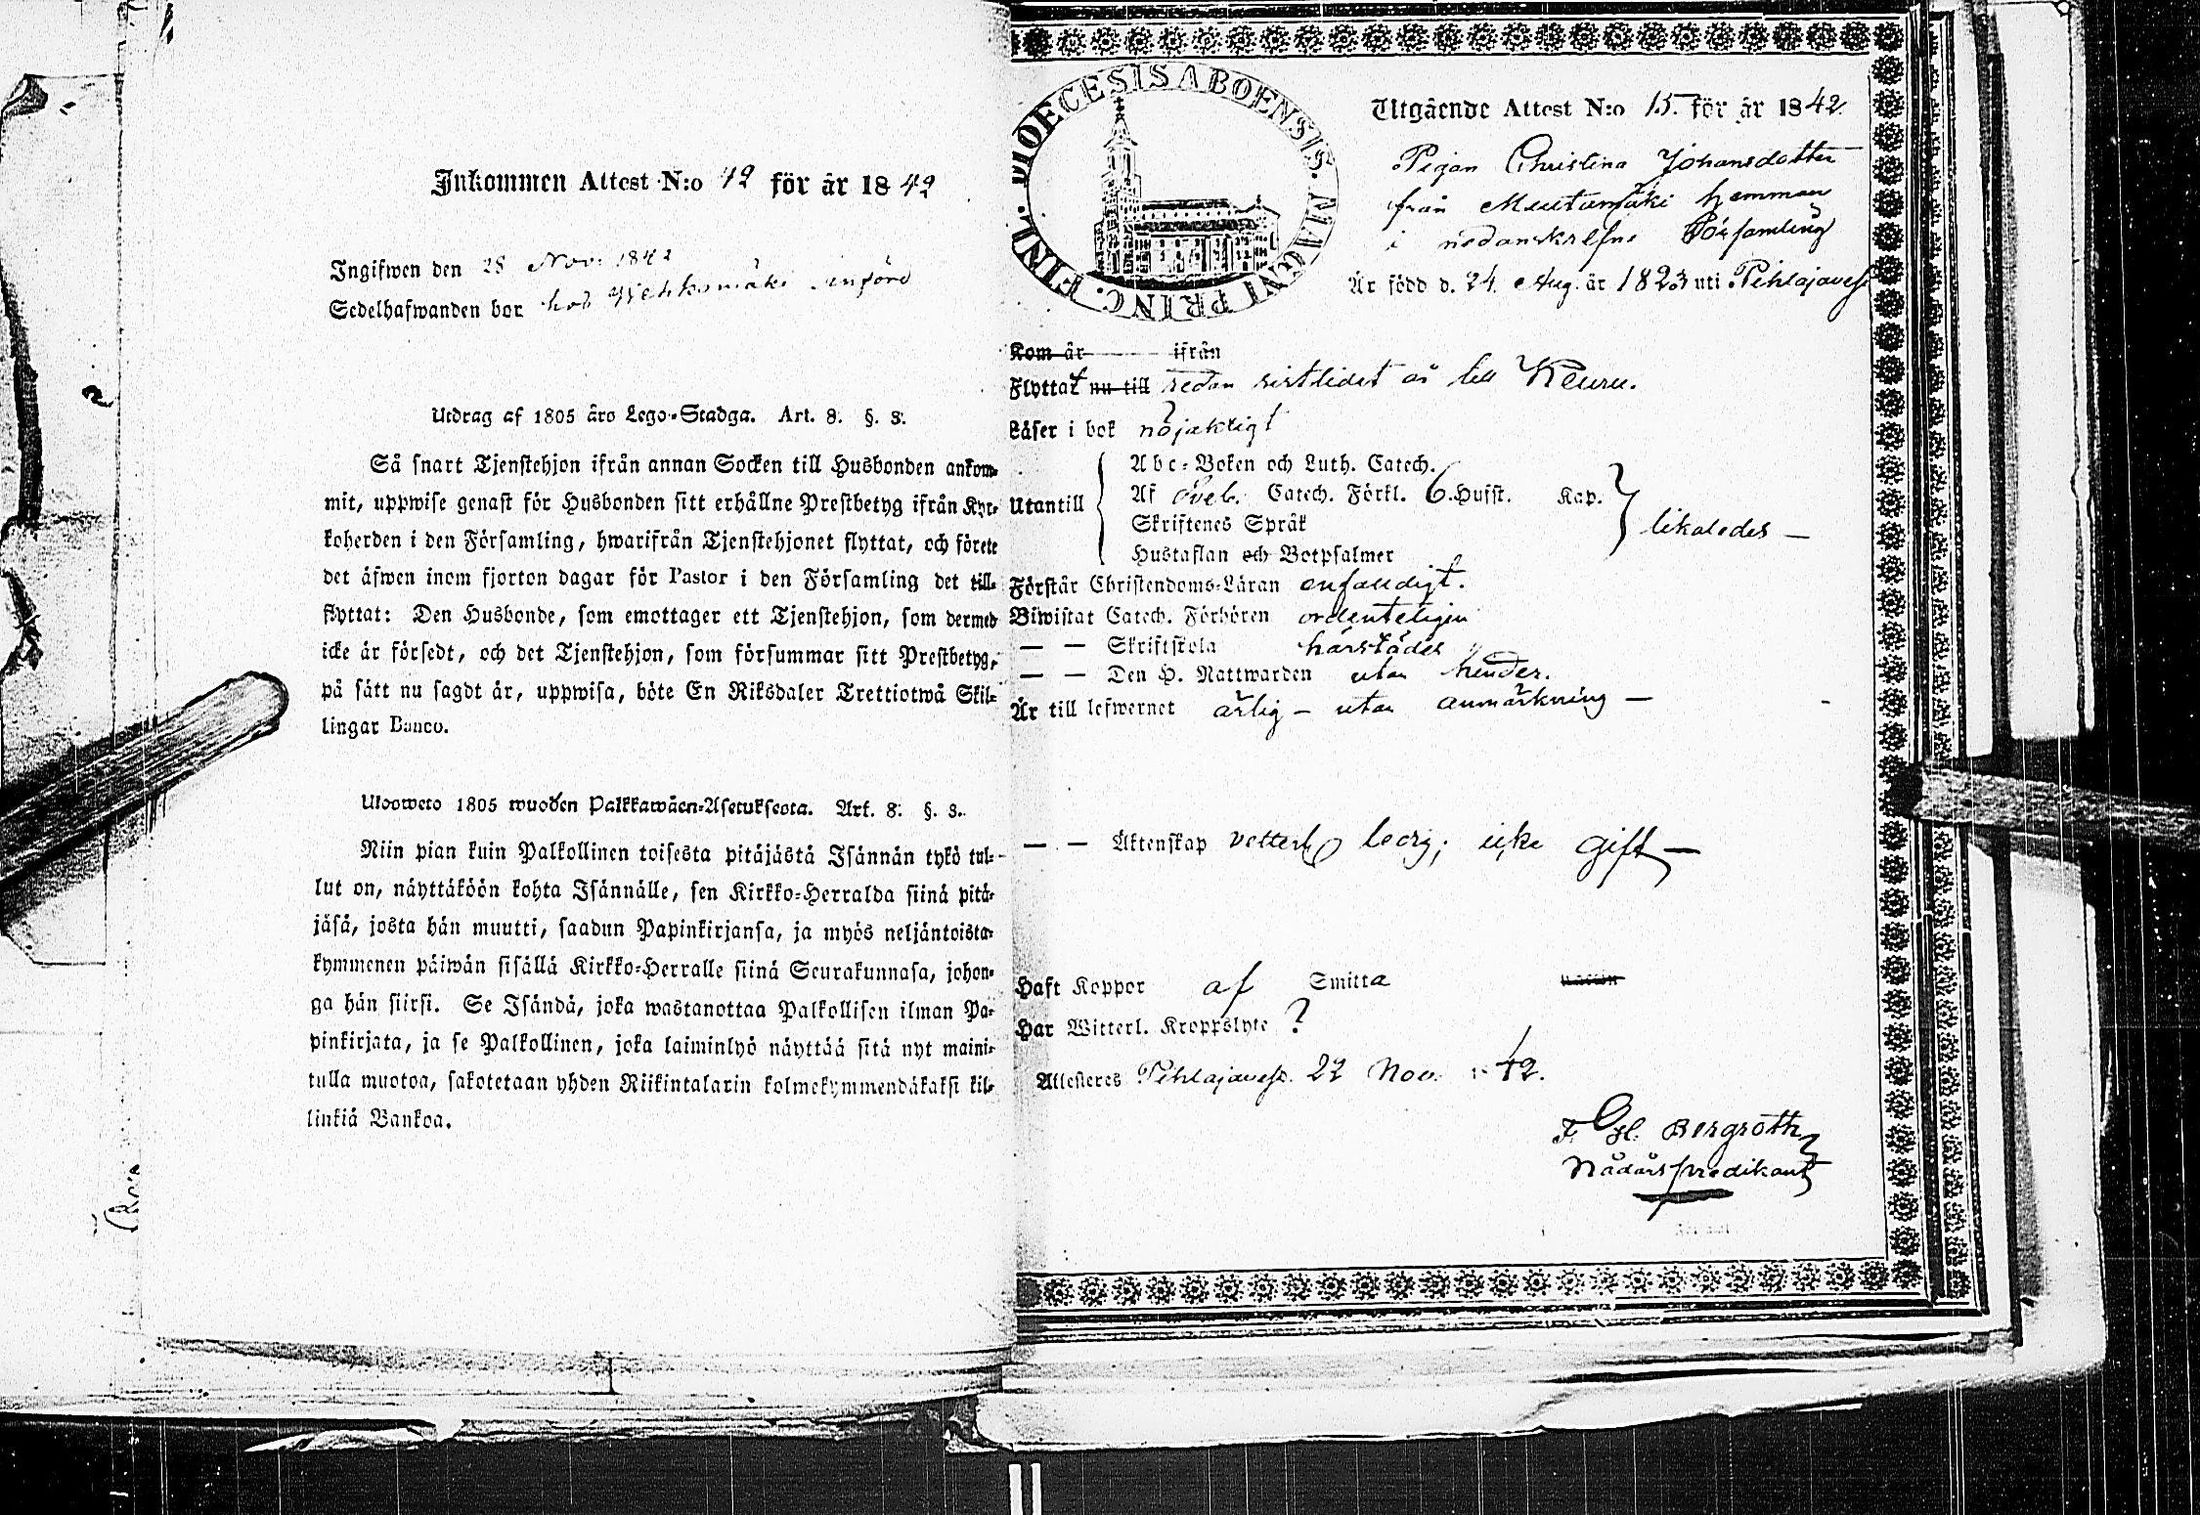 Inkommen Attest N:o 42 för år 1842
Ingifwen den 28 Nov. 1842
Sedelhafwanden bor hos införd
Utdrag af 1805 års Lego-Stadga. Art. 8. §. 3.
Så snart Tjenstehjon ifrån annan Socken till Husbonden ankom-
mit, uppwise genast för Husbonden sitt erhållne Prestbetyg ifrån Kyr-
koherden i den Församling, hwarifrån Tjenstehjonet flyttat, och förete
det äfwen inom fjorton dagar för Pastor i den Församling det till-
flyttat: Den Husbonde, som emottager ett Tjenstehjon, som dermed
icke är försedt, och det Tjenstehjon, som försummar sitt Prestbetyg,
på sätt nu sagdt är, uppwisa, böte En Riksdaler Trettiotwå Skil-
lingar Banco.
Ulosweto 1805 wuoden Palkkawäen-Asetuksesta. Art. 8. §. 3.
Niin pian kuin Palkollinen toisesta pitäjästä Isännän tykö tul-
lut on, näyttäköön kohta Isännälle, sen Kirkko-Herralda siinä pitä-
jäsä, josta hän muutti, saadun Papinkirjansa, ja myös neljäntoista-
kymmenen päiwän sisällä Kirkko-Herralle siinä Seurakunnasa, johon-
ga hän siirsi. Se Isändä, joka wastanottaa Palkollisen ilman Pa-
pinkirjata, ja se Palkollinen, joka laiminlyö näyttää sitä nyt maini-
tulla muotoa, sakotetaan yhden Riikintalarin kolmekymmendäkaksi kil-
linkiä Bankoa.
DIOECESIS ABOENSIS. MAGNI PRINC. FINL.
Utgående Attest N:o 15. för år 1842
Pigan Christina Johansdotter
från hemman
i nedanskrefne Församling
Är född d. 24. Aug. år 1823 uti Pihlajavesi
Kom år ifrån
Flyttat nu till sedan sistlidet år till Keuru.
Läser i bok nöjaktigt
Utantill
Abc-Boken och Luth. Catech.
Af Sveb. Catech. Förkl. 6. Hufst. Kap.
Skriftenes Språk
Hustaflan och Botpsalmer
likaledes —
Förstår Christendoms-Läran enfaldigt.
Biwistat Catech. Förhören ordenteligen
— — Skriftskola härstädes
— — Den H. Nattwarden utan hinder.
Är till lefwernet ärlig – utan anmärkning —
— — Äktenskap veterl. ledig; icke gift —
Haft Koppor af Smitta
Har Witterl. Kroppslyte ?
Attesteres Pihlajavesi. 22 Nov. 42.
F. Bergroth
Nådårspredikant